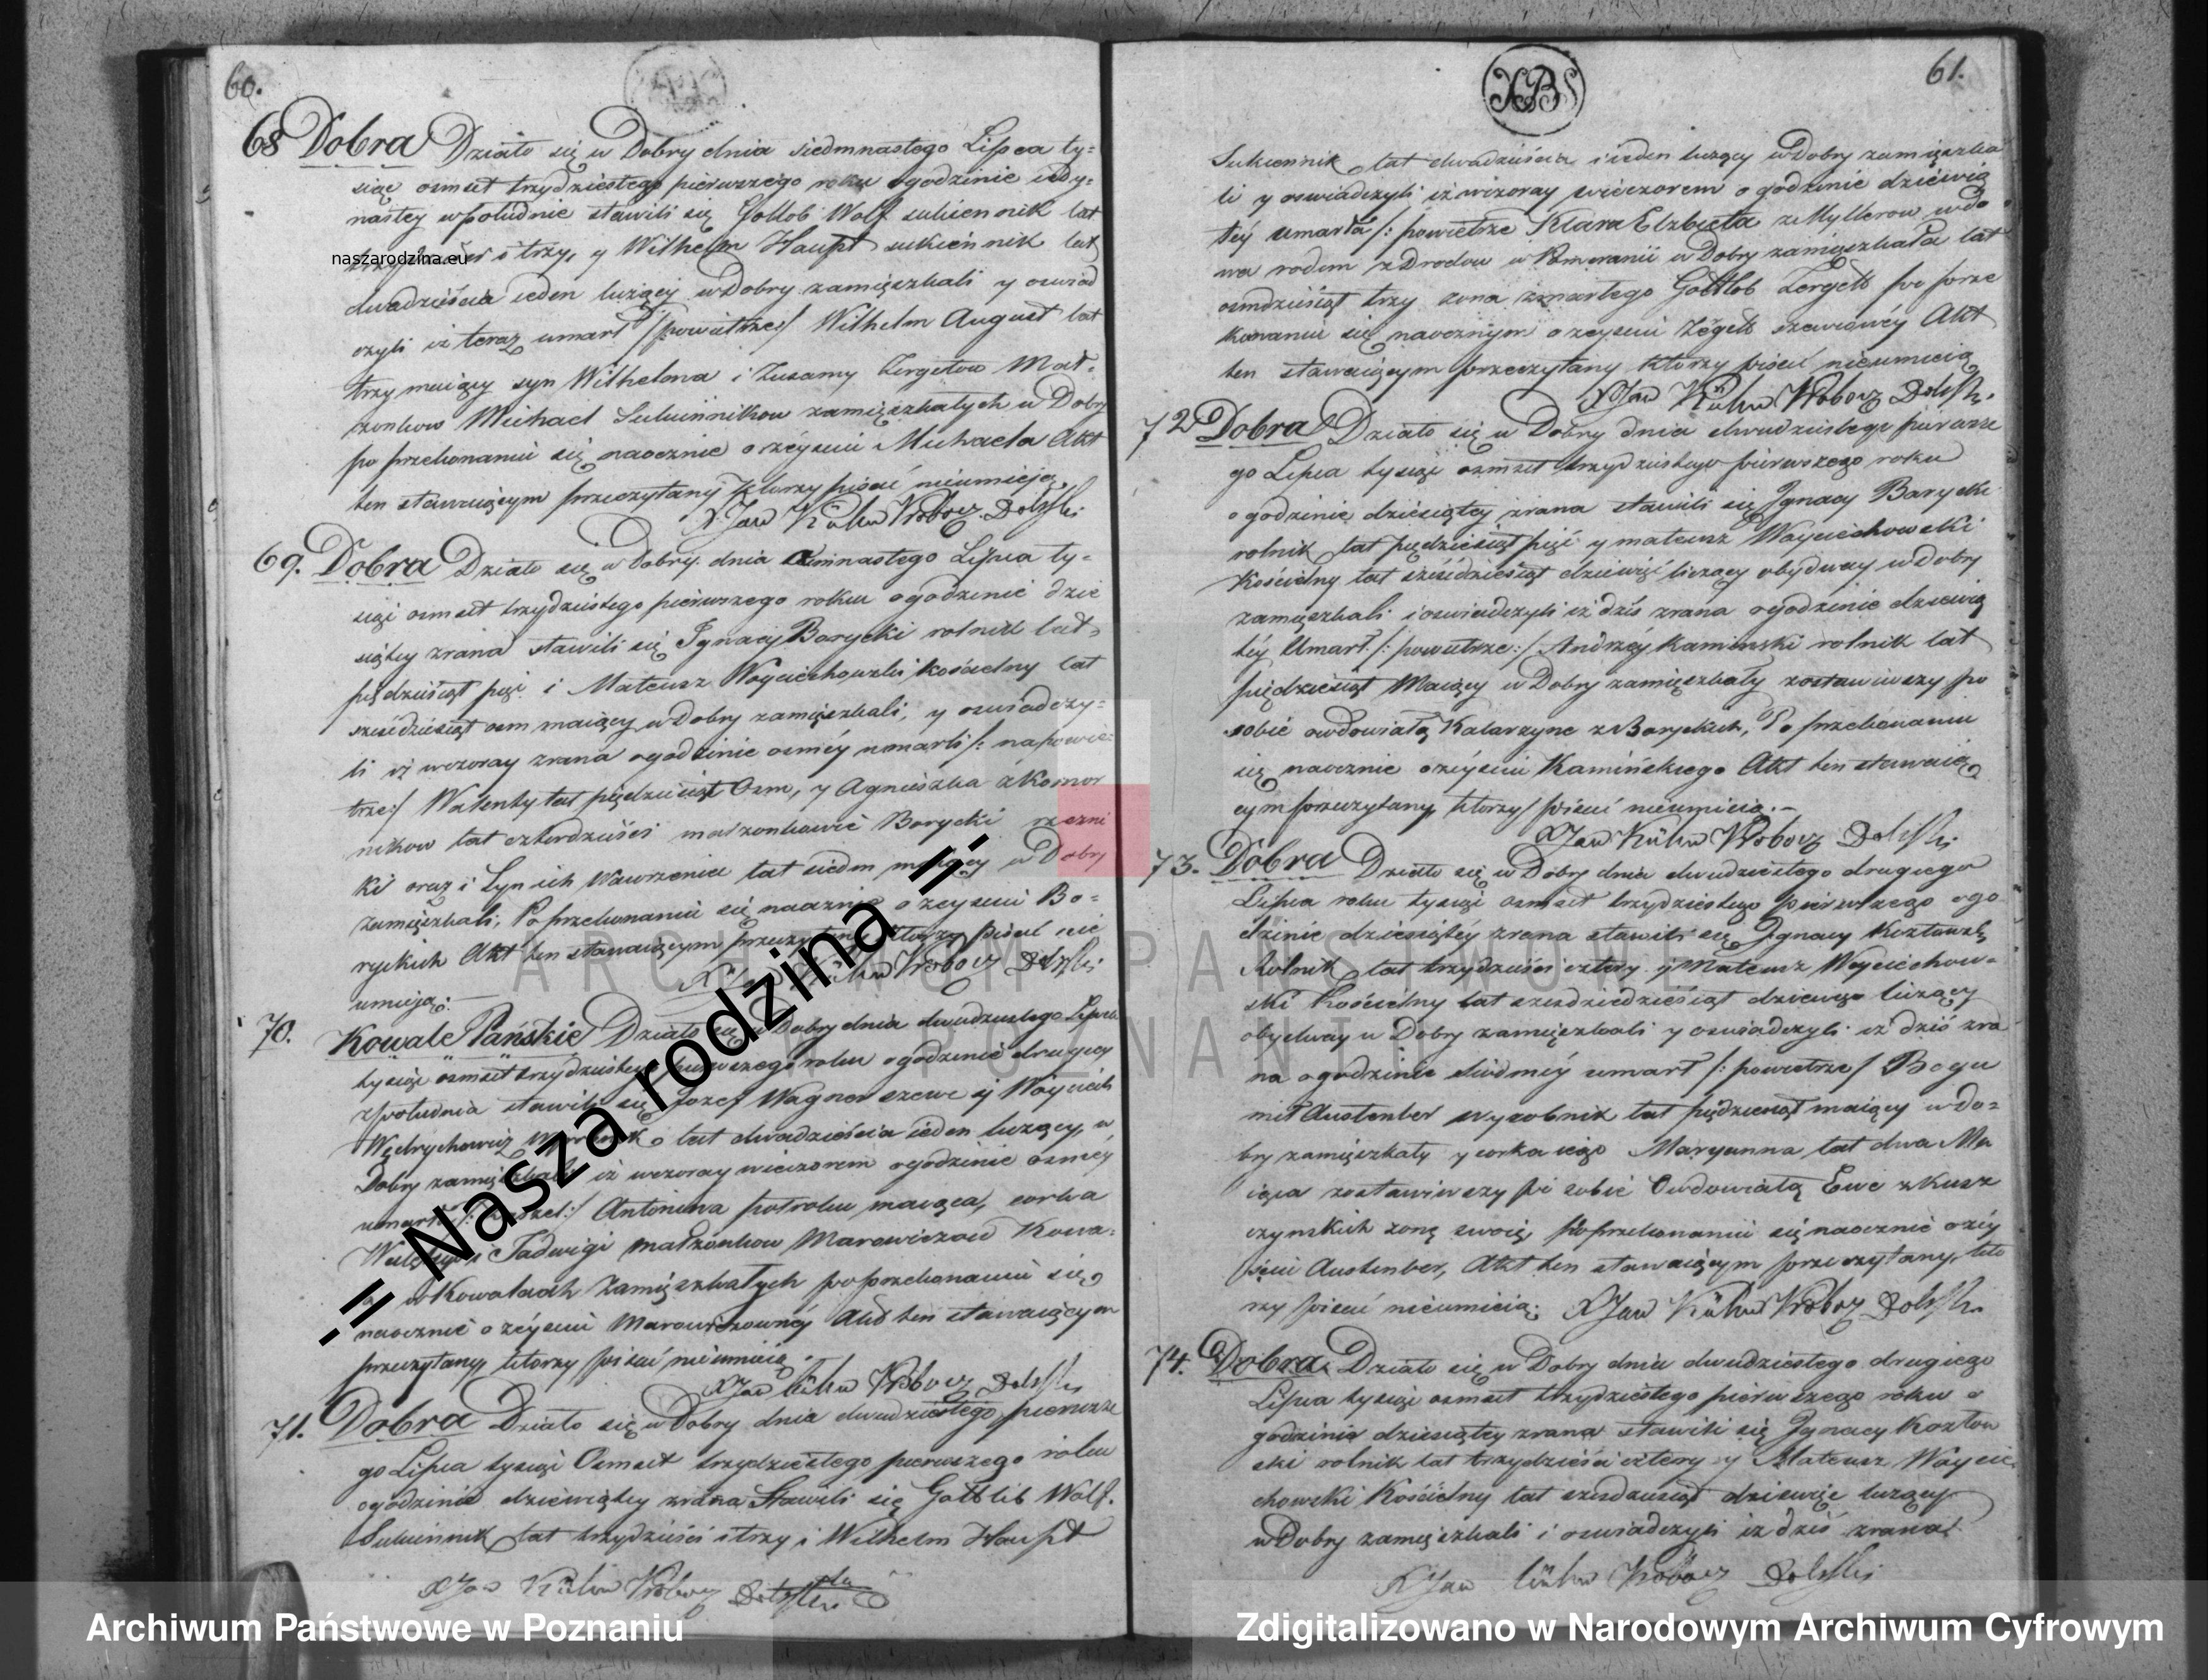 60.
68 Dobra Działo się w Dobry dnia siedmnastego Lipca ty=
siąc osmset trzydziestego pierwszego roku o godzinie iedy=
nastey w południe stawili się Gottob Wolf sukiennik lat
i trzy, y Wilhelm Haupt sukiennik lat
naszarodzina.eu
dwadzieścia ieden liczący w Dobry zamięszkali y oswiad
czyli iż teraz umarł /:powietrze:/ Wilhelm August lat
trzy maiący syn Wilhelma i Zuzanny Mał=
żonkow Michael Sukiennikow zamięszkałych w Dobry
po przekonaniu się naocznie o zeyściu Michaela Akt
ten stawaiącym przeczytany ktorzy pisać nieumieią.
XJan Kühn Prob: Dobrski
69. Dobra Działo się w Dobry dnia osmnastego Lipca ty=
siąc osmset trzydziestego pierwszego roku o godzinie dzie
siątey zrana stawili się Ignacy Barycki rolnik lat
piędziesiąt pięć i Mateusz Woyciechowski kościelny lat
sześdziesiąt osm maiący w Dobry zamięszkali, y oswiadczy=
li iż wczoray zrana o godzinie osméy umarli /: na powie=
trze:/ Walenty lat pięдziesiąt Osm, y Agnieszka z Komor
nikow lat czterdzieści małżonkowie Barycki rzezni
ki oraz i Syn ich Wawrzeniec lat siedm maiący w Dobry
zamięszkali, Po przekonaniu się naocznie o zeysciu Ba=
ryckich Akt ten stawaiącym przeczytany ktorzy pisać nie
umieią.
XJan Kühn Prob: Dobrski
70. Kowale Pańskie Działo się w Dobry dnia dwudziestego Lipca
tysiąc osmset trzydziestego pierwszego roku o godzinie drugiey
z południa stawili się Jozef Wagner szewc y Woyciech
Wędrychowicz lat dwadzieścia ieden liczący, w
Dobry zamięszkali iż wczoray wieczorem o godzinie osméy
umarła /: kaszel:/ Antonina poł roku maiąca, corka
i Jadwigi małżonkow Marowiczow Kowa=
w Kowalach zamięszkałych po przekonaniu się
naocznie o zéyściu Marowiczowney Akt ten stawaiącym
przeczytany, ktorzy pisać nieumieią.
XJan Kühn Prob: Dobrski
71. Dobra Działo się w Dobry dnia dwudziestego pierwsze
go Lipca tysiąc Osmset trzydziestego pierwszego roku
o godzinie dziewiątey zrana Stawili się Gottlib Wolf.
Sukiennik lat trzydzieści i trzy i Wilhelm Haupt
XJan Kühn Prob: Dobrski
61.
Sukiennik lat dwadzieścia i ieden liczący w Dobry zamięszka
li y oswiadczyli iż wczoray wieczorem o godzinie dziewią
téy umarła /: powietrze Klara Elżbieta z Myllerow wdo
wa rodem z Drodow w Pomeranii w Dobry zamieszkała lat
osmdziesiąt trzy żona zmarłego Gottlob Zergelt po prze
konaniu się naocznym o zeyściu Akt
ten stawaiącym przeczytany ktorzy pisać nieumieią
XJan Kühn Prob: Dobrski
72 Dobra Działo się w Dobry dnia dwudziestego pierwsze
go Lipca tysiąc osmset trzydziestego pierwszego roku
o godzinie dziesiątey zrana stawili się Ignacy Barycki
rolnik lat pięдziesiąt pięć y mateusz Woyciechowski
Kościelny lat sześdziesiąt dziewięć liczący obydway w Dobry
zamięszkali i oswiadczyli iż dziś zrana o godzinie dziewią
téy Umarł /: powietrze:/ Andrzéy Kaminski rolnik lat
pięдziesiąt Maiący w Dobry zamięszkały zostawiwszy po
sobie owdowiałą Katarzyne z Baryckich, Po przekonaniu
się naocznie o zéyściu Kamińskiego Akt ten stawaią
cym przeczytany, ktorzy pisać nieumieią.
XJan Kühn Prob: Dobrski
73. Dobra Działo się w Dobry dnia dwudziestego drugiego
Lipca roku tysiąc osmset trzydziestego pierwszego o go
dzinie dziesiątéy zrana stawili się Ignacy Kozłowski
Rolnik lat trzydzieści cztery y Mateusz Woyciechow=
ski Kościelny lat sześdziesiąt dziewięć liczący
obydway w Dobry zamięszkali y oswiadczyli iż dziś zra
na o godzinie siódméy umarł /: powietrze/ Bogu
mił Austenber wyrobnik lat pięдziesiąt maiący w Do=
bry zamięszkały y corka iego Maryanna lat dwa Ma
iąca zostawiwszy po sobie Owdowiałą Ewe z Kusz
czynskich żonę swoię, Po przekonaniu się naocznie o zéy
ściu Austenber, Akt ten stawaiącym przeczytany, kto
rzy pisać nieumieią. XJan Kühn Prob: Dobrski
74. Dobra Działo się w Dobry dnia dwudziestego drugiego
Lipca tysiąc osmset trzydziestego pierwszego roku o
godzinie dziesiątey zrana stawili się Ignacy Kozłow
ski rolnik lat trzydzieści cztery y Mateusz Woycie
chowski Kościelny lat sześdziesiąt dziewięć liczący
w Dobry zamięszkali i oswiadczyli iż dziś zrana
XJan Kühn Prob: Dobrski
ARCHIWUM PAŃSTWOWE
W POZNANIU
.:: Nasza rodzina ::.
Archiwum Państwowe w Poznaniu
Zdigitalizowano w Narodowym Archiwum Cyfrowym